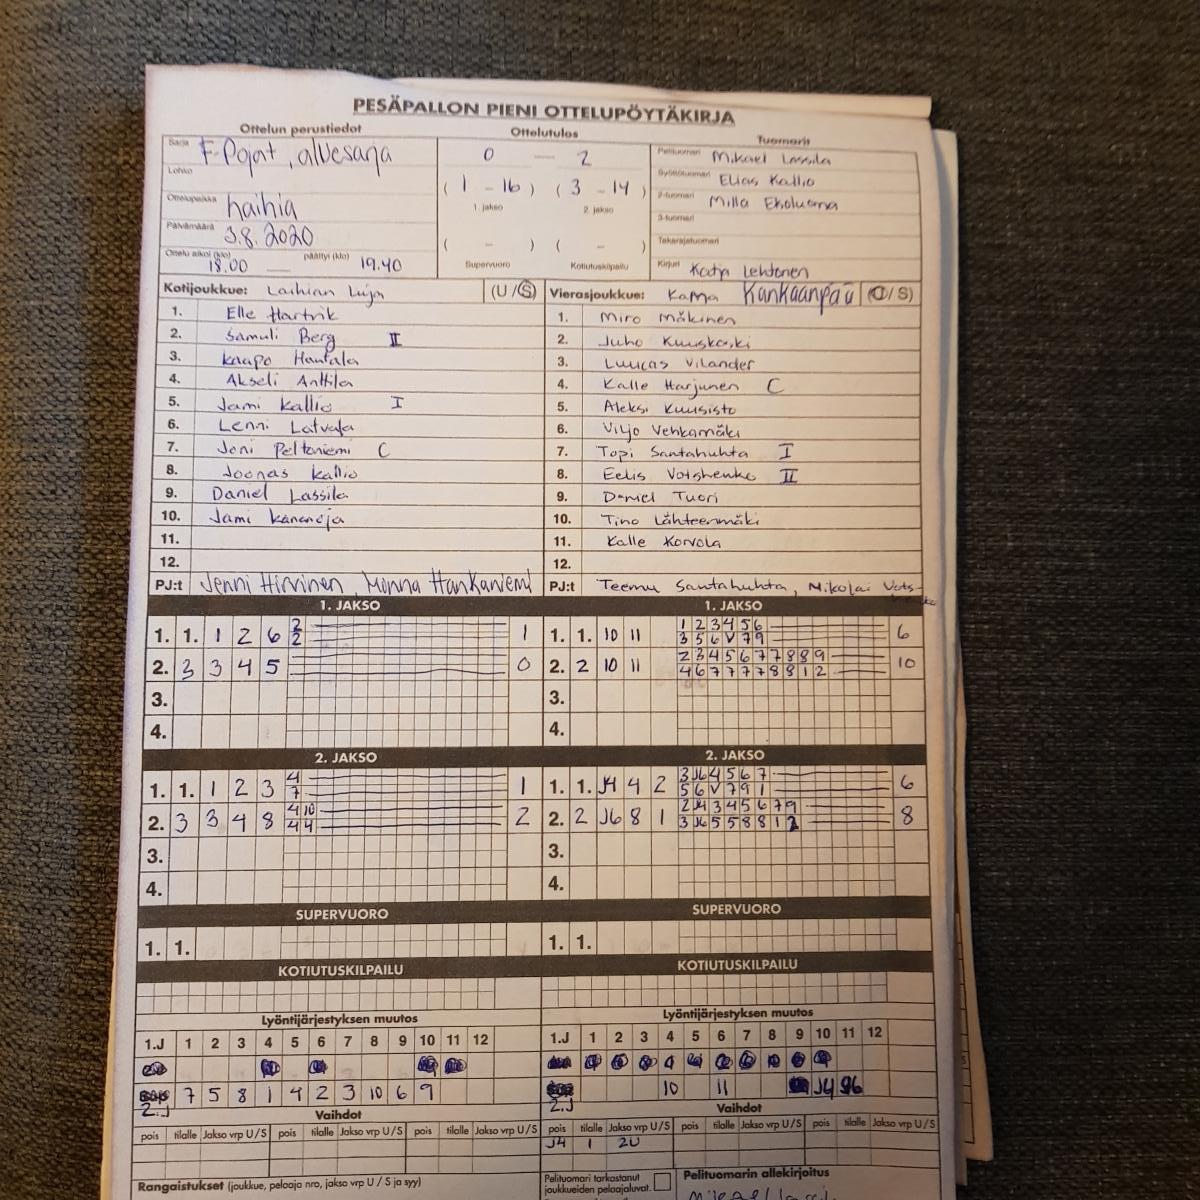 PESÄPALLON PIENI OTTELUPÖYTÄKIRJA
Ottelun perustiedot
Ottelutulos
Tuomarit
Sarja F-Pojat, aluesarja
Lohko
Ottelupaikka Laihia
Päivämäärä 3.8.2020
Ottelu alkoi (klo) 18.00 — päättyi (klo) 19.40
0 — 2
( 1 - 16 ) ( 3 - 14 )
1. jakso 2. jakso
( - ) ( - )
Supervuoro Kotiutuskilpailu
Pelituomari Mikael Lassila
Syöttötuomari Elias Kallio
2-tuomari Milla Ekoluoma
3-tuomari
Takarajatuomari
Kirjuri Katja Lehtonen
Kotijoukkue: Laihian Luja (U/S)
1. Elle Hartvik
2. Samuli Berg II
3. Kaapo Hantala
4. Akseli Anttila
5. Jami Kallio I
6. Lenni Latvala
7. Joni Peltoniemi C
8. Joonas Kallio
9. Daniel Lassila
10. Jami Kananoja
11.
12.
PJ:t Jenni Hirvinen, Monna Hankaniemi
Vierasjoukkue: KaMa Kankaanpää (U/S)
1. Miro Mäkinen
2. Juho Kuuskoski
3. Luucas Vilander
4. Kalle Harjunen C
5. Aleksi Kuusisto
6. Viljo Vehkamäki
7. Topi Santahuhta I
8. Eelis Votshenko II
9. Daniel Tuori
10. Tino Lähteenmäki
11. Kalle Korvola
12.
PJ:t Teemu Santahuhta, Mikolai Vots-
1. JAKSO
1. 1. 1 2 6 2 1
2
2. 3 3 4 5 0
3.
4.
1. JAKSO
1. 1. 10 11 1 2 3 4 5 6 6
3 5 6 V 7 9
2. 2 10 11 2 3 4 5 6 7 7 8 8 9 10
4 6 7 7 7 7 8 8 1 2
3.
4.
2. JAKSO
1. 1. 1 2 3 4 1
7
2. 3 3 4 8 4 10 2
4 4
3.
4.
2. JAKSO
1. 1. J4 4 2 3 J6 4 5 6 7 6
5 6 V 7 9 1
2. 2 J6 8 1 2 J4 3 4 5 6 7 9 8
3 J6 5 5 8 8 1 2
3.
4.
SUPERVUORO
1. 1.
SUPERVUORO
1. 1.
KOTIUTUSKILPAILU
KOTIUTUSKILPAILU
Lyöntijärjestyksen muutos
1.J 1 2 3 4 5 6 7 8 9 10 11 12
7 5 8 1 4 2 3 10 6 9
2.J
Lyöntijärjestyksen muutos
1.J 1 2 3 4 5 6 7 8 9 10 11 12
10 11 J4
2.J
Vaihdot
pois tilalle Jakso vrp U/S pois tilalle Jakso vrp U/S pois tilalle Jakso vrp U/S
Vaihdot
pois tilalle Jakso vrp U/S pois tilalle Jakso vrp U/S pois tilalle Jakso vrp U/S
J4 1 2U
Rangaistukset (joukkue, pelaaja nro, jakso vrp U / S ja syy)
Pelituomari tarkastanut
joukkueiden pelaajaluvat.
Pelituomarin allekirjoitus